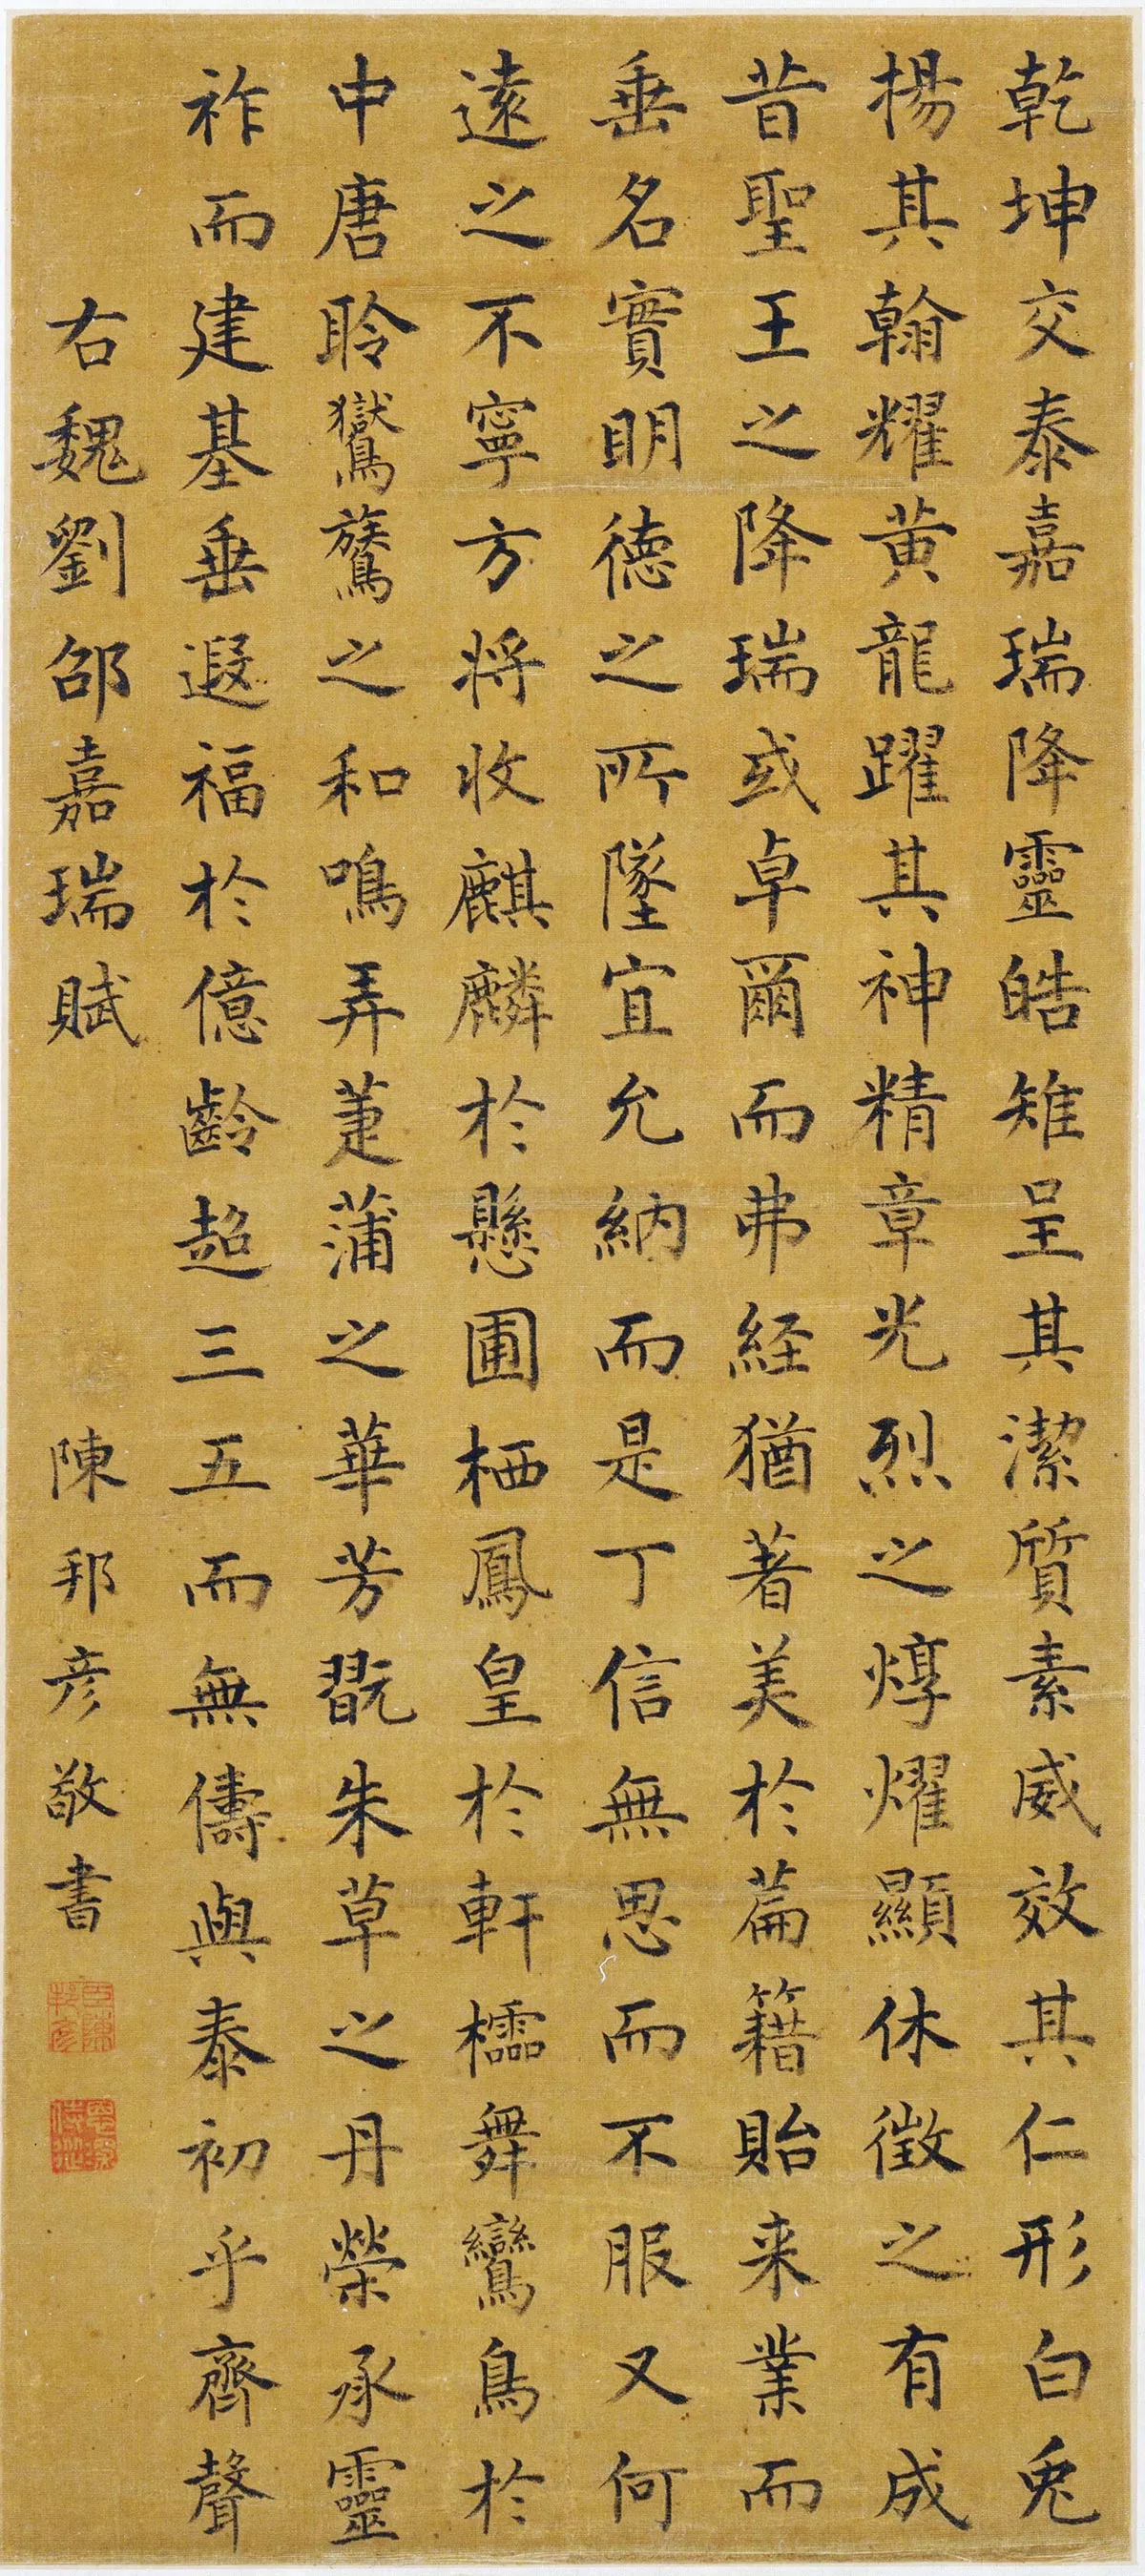 乾坤交泰嘉瑞降靈皓雉呈其潔質素威效其仁形白兎
揚其翰耀黄龍躍其神精章光烈之焞燿顯休徵之有成
昔聖王之降瑞或卓爾而弗経猶著美於篇籍貽来業而
垂名實明徳之所墜宜允納而是丁信無思而不服又何
遠之不寧方将收麒麟於懸圃栖鳳皇於軒櫺舞鸞鳥於
中唐聆鸑鷟之和鳴弄萐蒲之華芳翫朱草之丹榮承靈
祚而建基垂遐福於億齡超三五而無儔與泰初乎齊聲
右魏劉邵嘉瑞賦
陳邦彦敬書